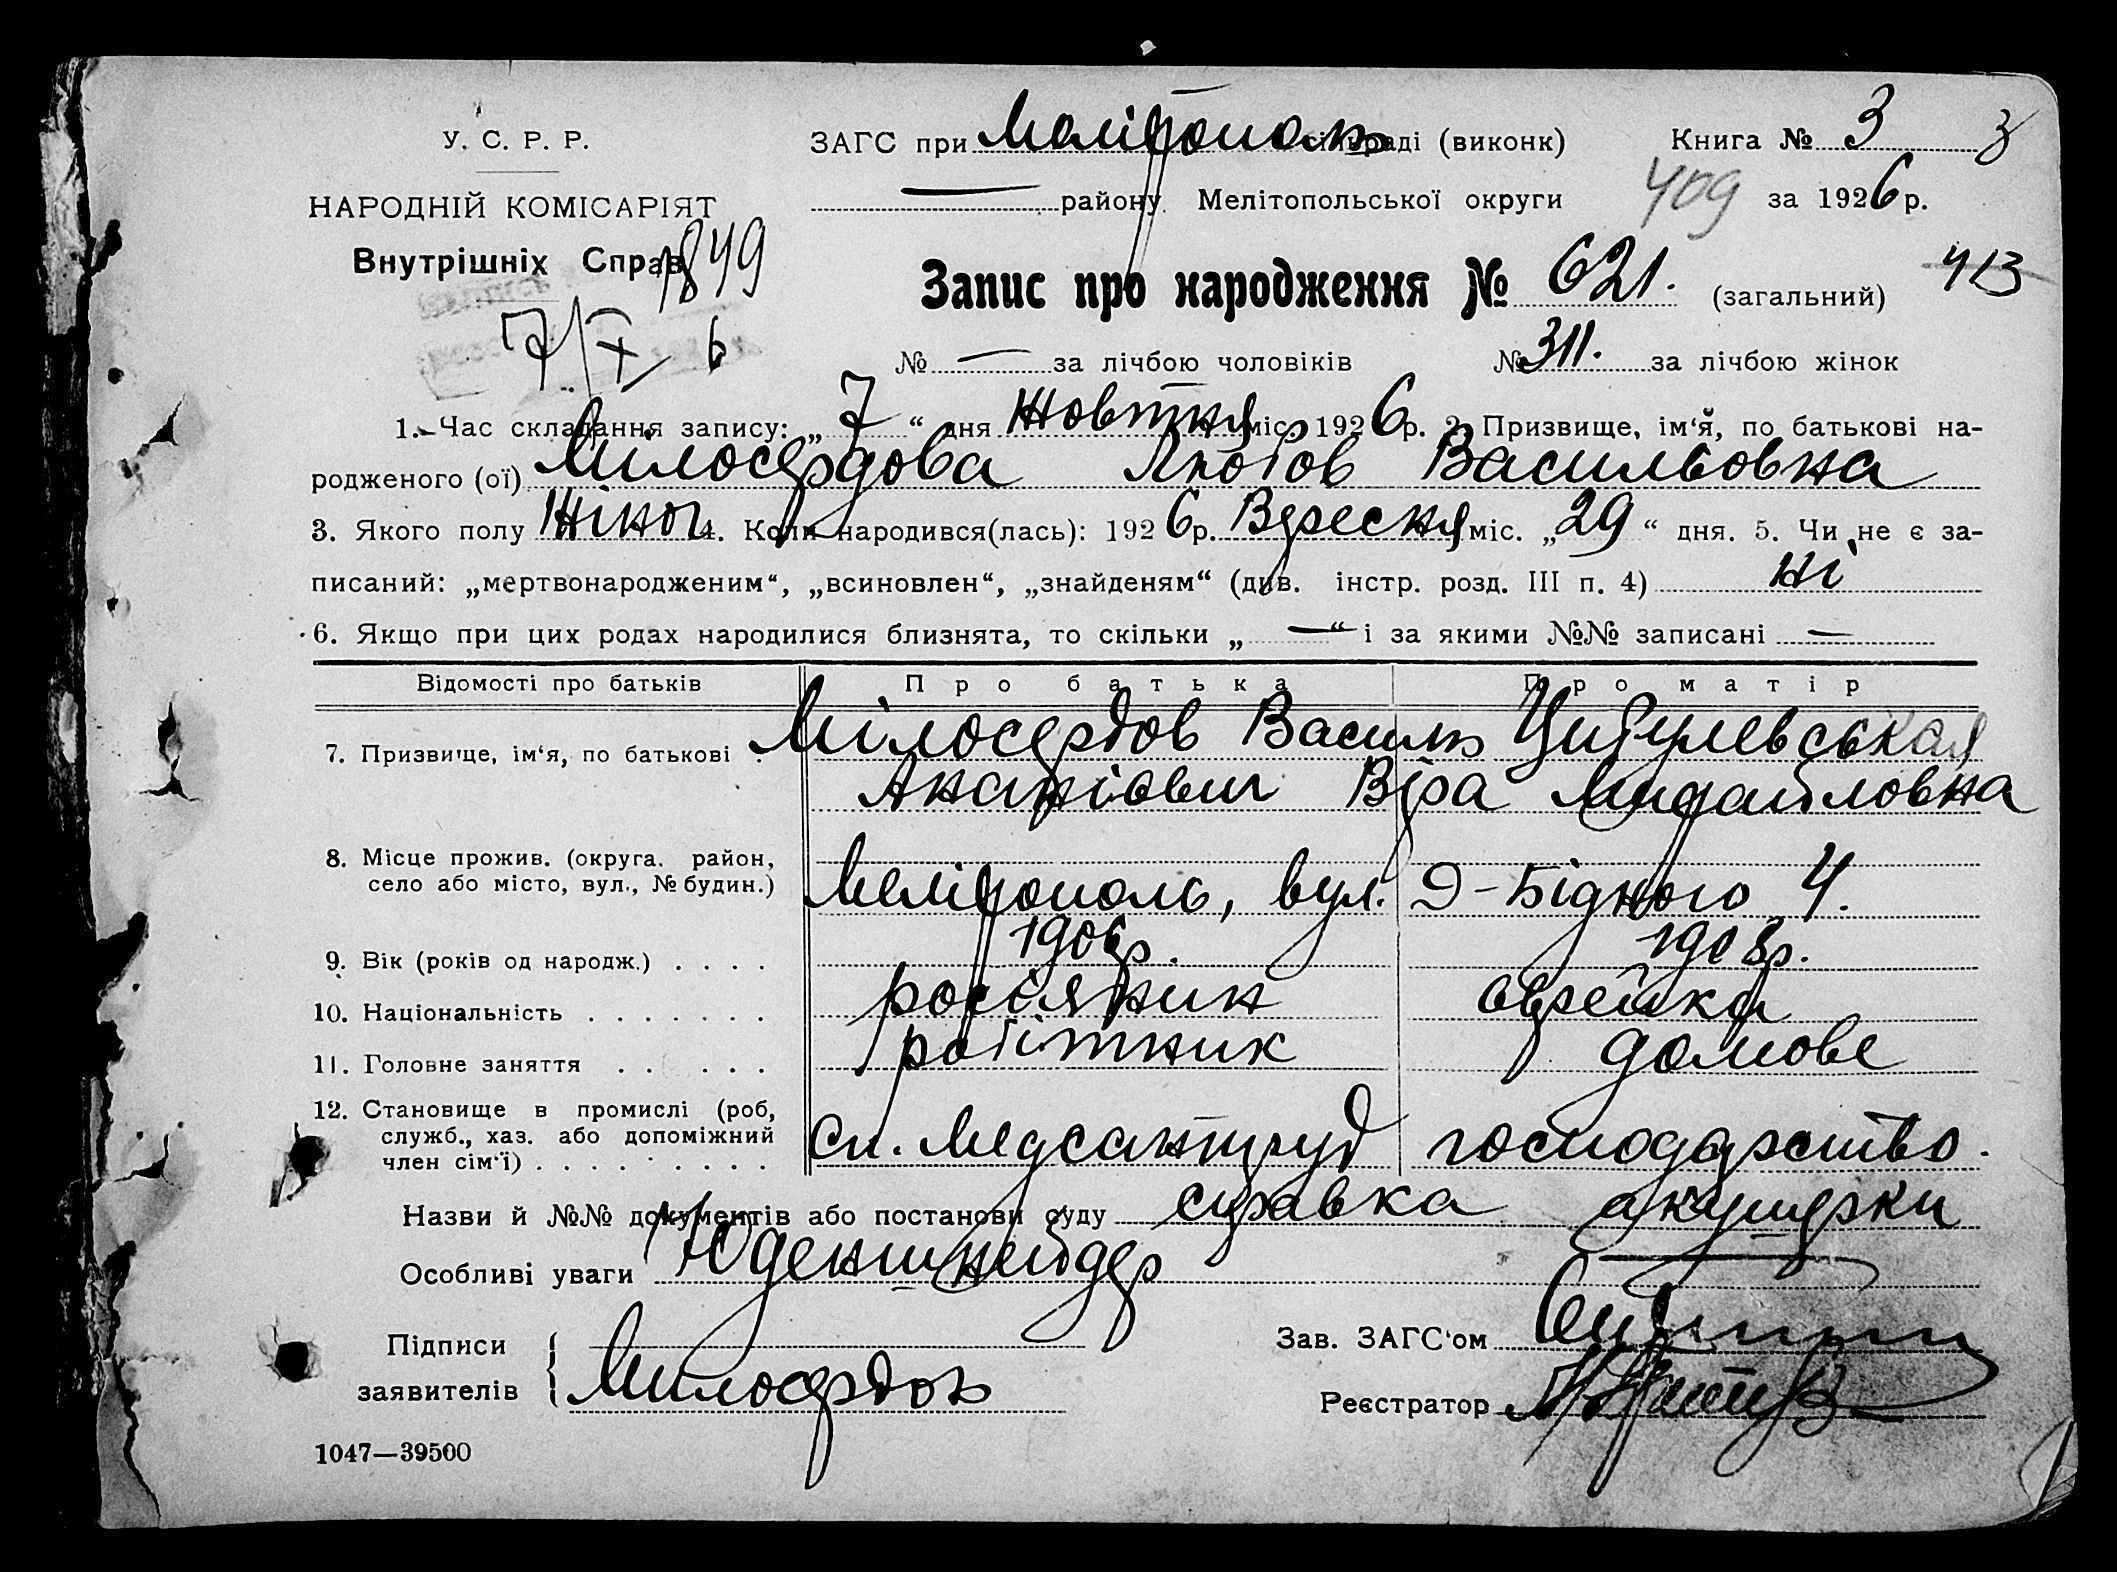 У. С. Р. Р.
НАРОДНІЙ КОМІСАРІЯТ
Внутрішніх Справ
1849
7/X 6
ЗАГС при Мелітополь сільраді (виконк) Книга № 3 3
— району Мелітопольської округи 409 за 1926 р.
Запис про народження № 621. (загальний) 413
№ — за лічбою чоловіків № 311. за лічбою жінок
1. Час складання запису: „7“ дня Жовтня міс. 1926 р. 2. Призвище, ім‘я, по батькові на-
родженого (ої) Мілосердова Любов Васильовна
3. Якого полу Жіноч 4. Коли народився(лась): 1926 р. Вересня міс. „29“ дня. 5. Чи не є за-
писаний: „мертвонародженим“, „всиновлен“, „знайденям“ (див. інстр. розд. III п. 4) ні
6. Якщо при цих родах народилися близнята, то скільки „—“ і за якими №№ записані —
Відомості про батьків Про батька Про матір
7. Призвище, ім‘я, по батькові Мілосердов Василь Цибулевськая
Ананіович Віра Михайловна
8. Місце прожив. (округа, район,
село або місто, вул., № будин.) Мелітополь, вул. Д-Бідного 4.
9. Вік (років од народж.) . . . . 1906 р. 1908 р.
10. Національність . . . . . . . росіянин єврейка
11. Головне заняття . . . . . . робітник домове
12. Становище в промислі (роб,
служб., хаз. або допоміжний
член сім‘ї) . . . . . . . . . Сп. Медсантруд господарство.
Назви й №№ документів або постанови суду справка акушерки
Особливі уваги Юденшнейдер
Підписи
заявителів Милосердов
Зав. ЗАГС‘ом
Реєстратор
1047—39500